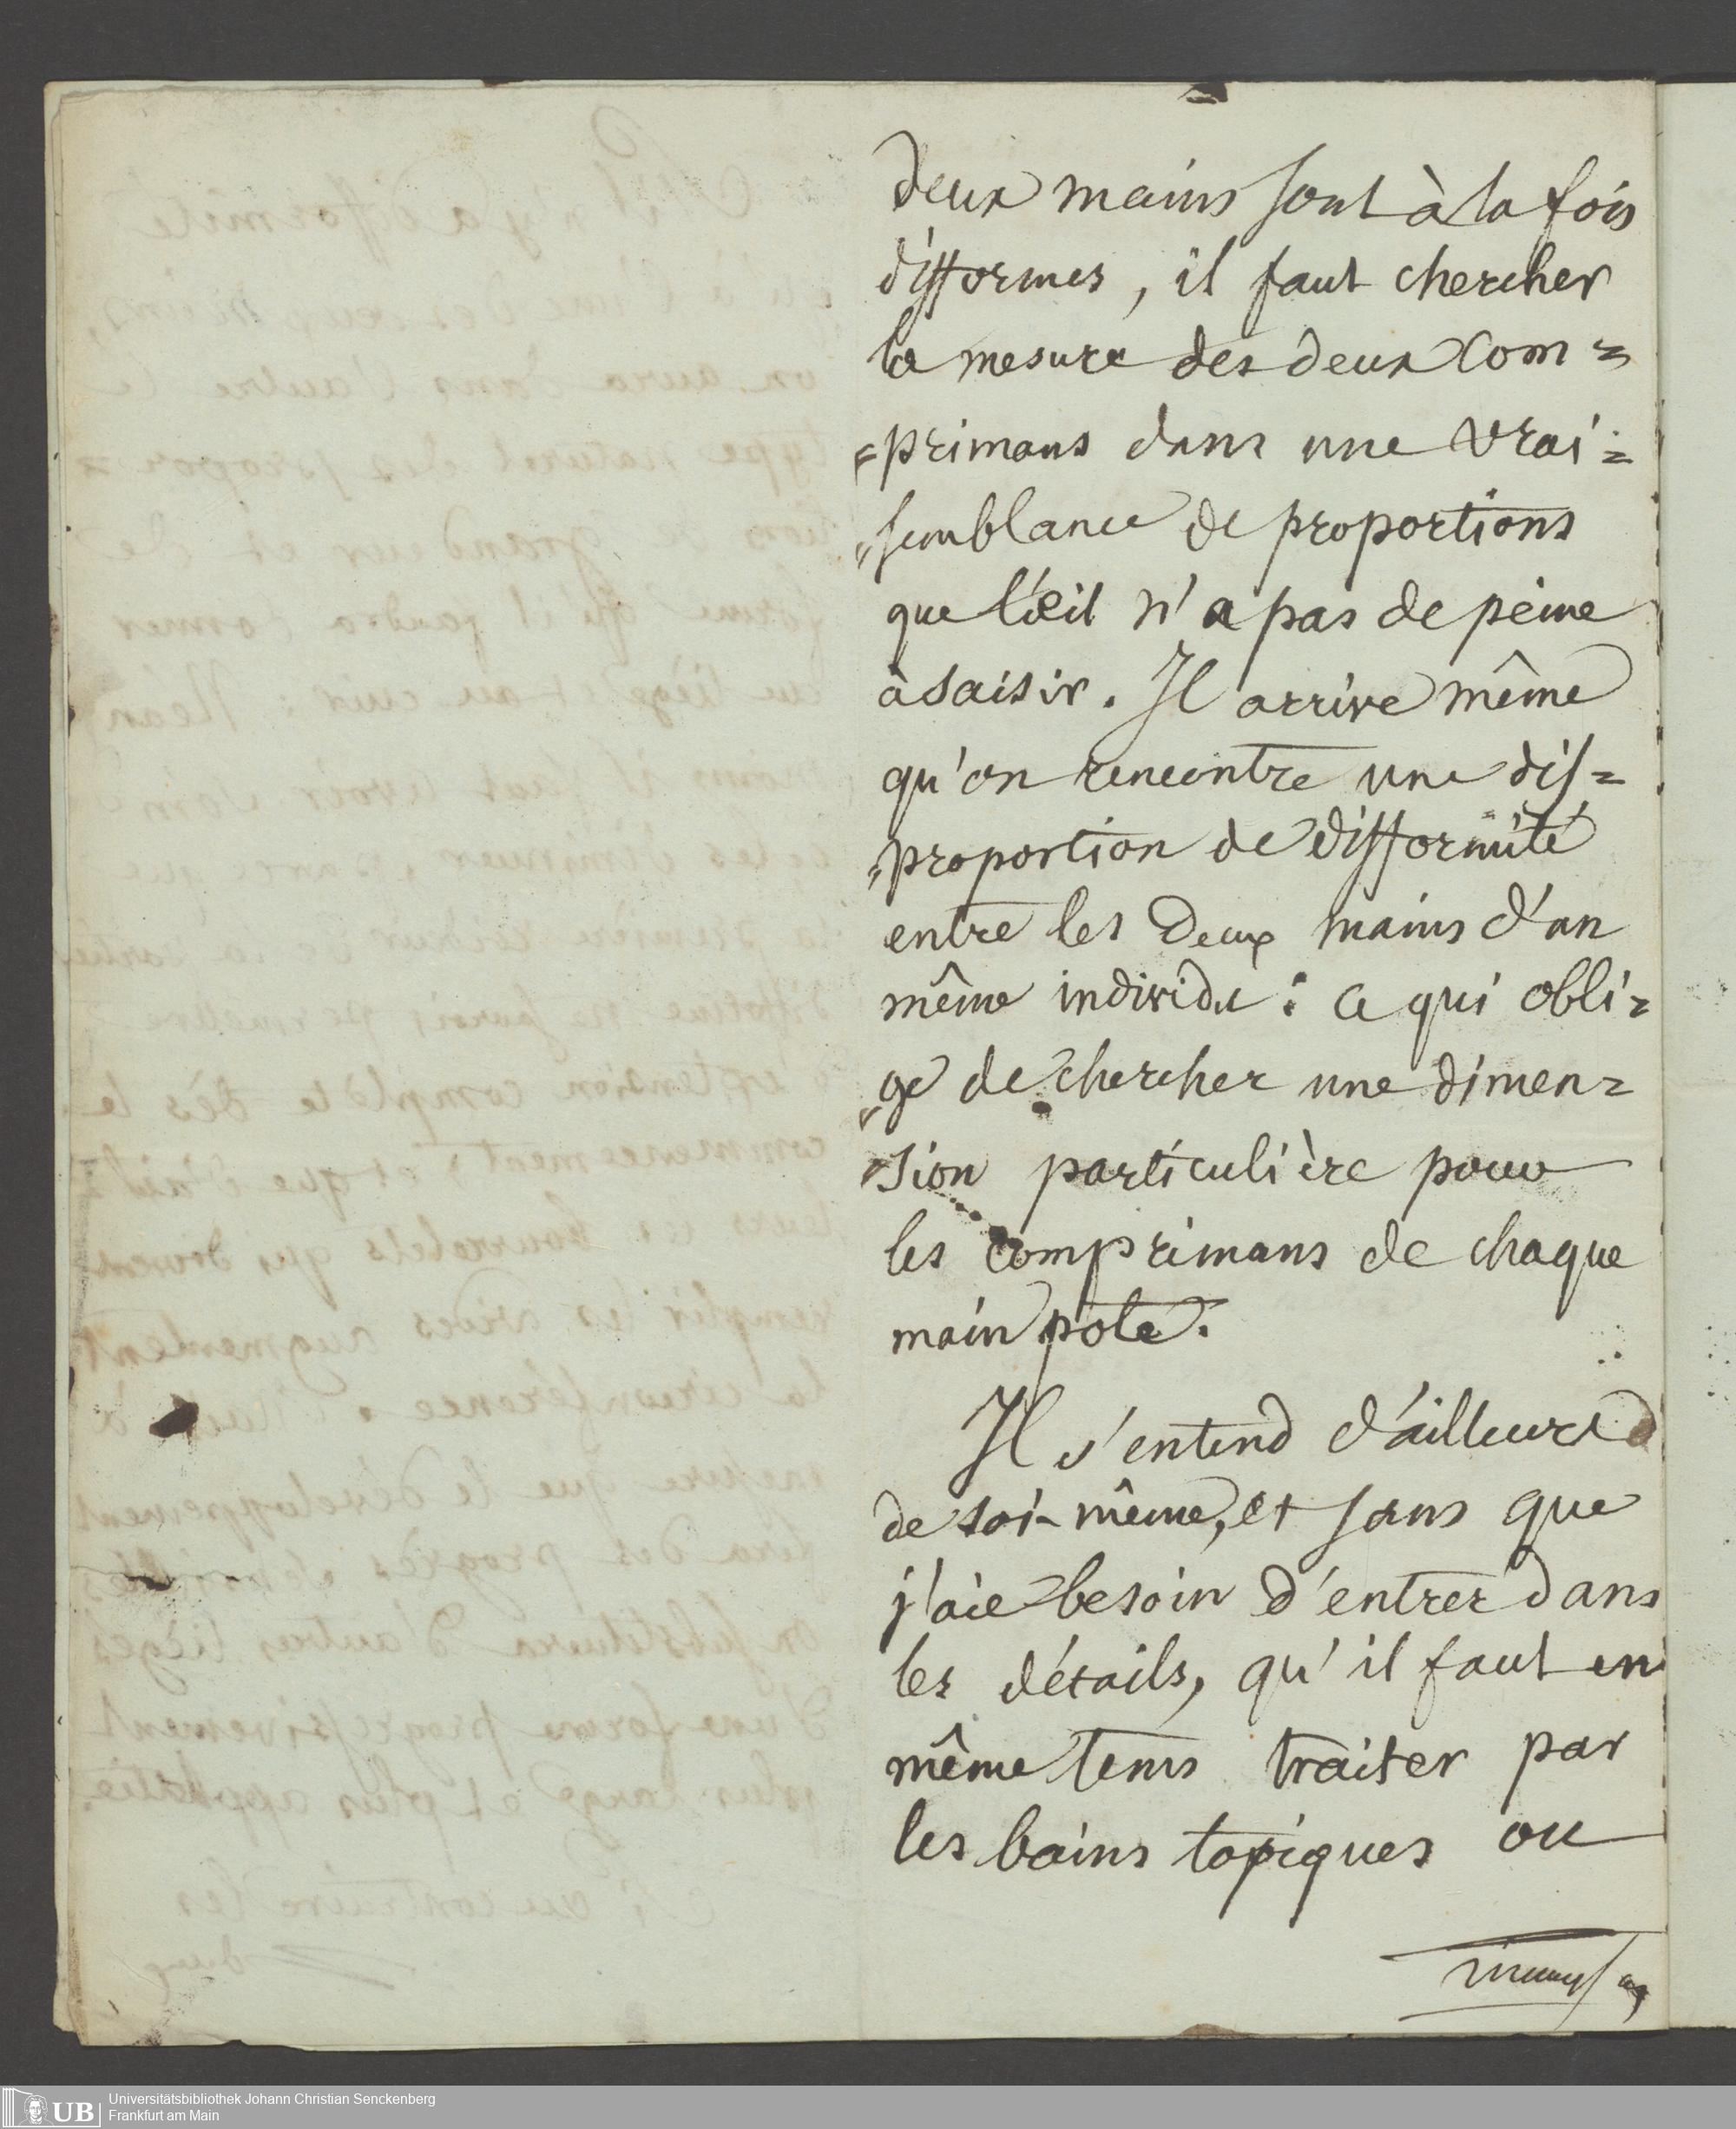 deux mains sont à la fois
difformes, il faut chercher
la mesure des deux com=
=primans dans une vrai=
"semblance de proportions
que l'œil n'a pas de peine
à saisir. Il arrive même
qu'on rencontre une dis=
"proportion de difformité
entre les deux mains d'un
même individu : ce qui obli=
"ge de chercher une dimen=
"sion particulière pour
les comprimans de chaque
main pote.
Il s'entend d'ailleurs
de soi-même, et sans que
j'aie besoin d'entrer dans
les détails, qu'il faut en
même tems traiter par
les bains topiques ou
Universitätsbibliothek Johann Christian Senckenberg
Frankfurt am Main
UB